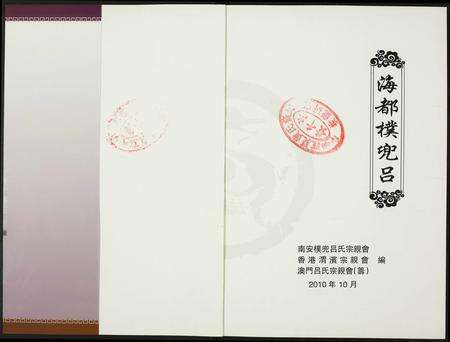 海都樸兜吕
南安樸兜吕氏宗親會
香港渭濱宗親會 編
澳門吕氏宗親會(籌)
2010年10月